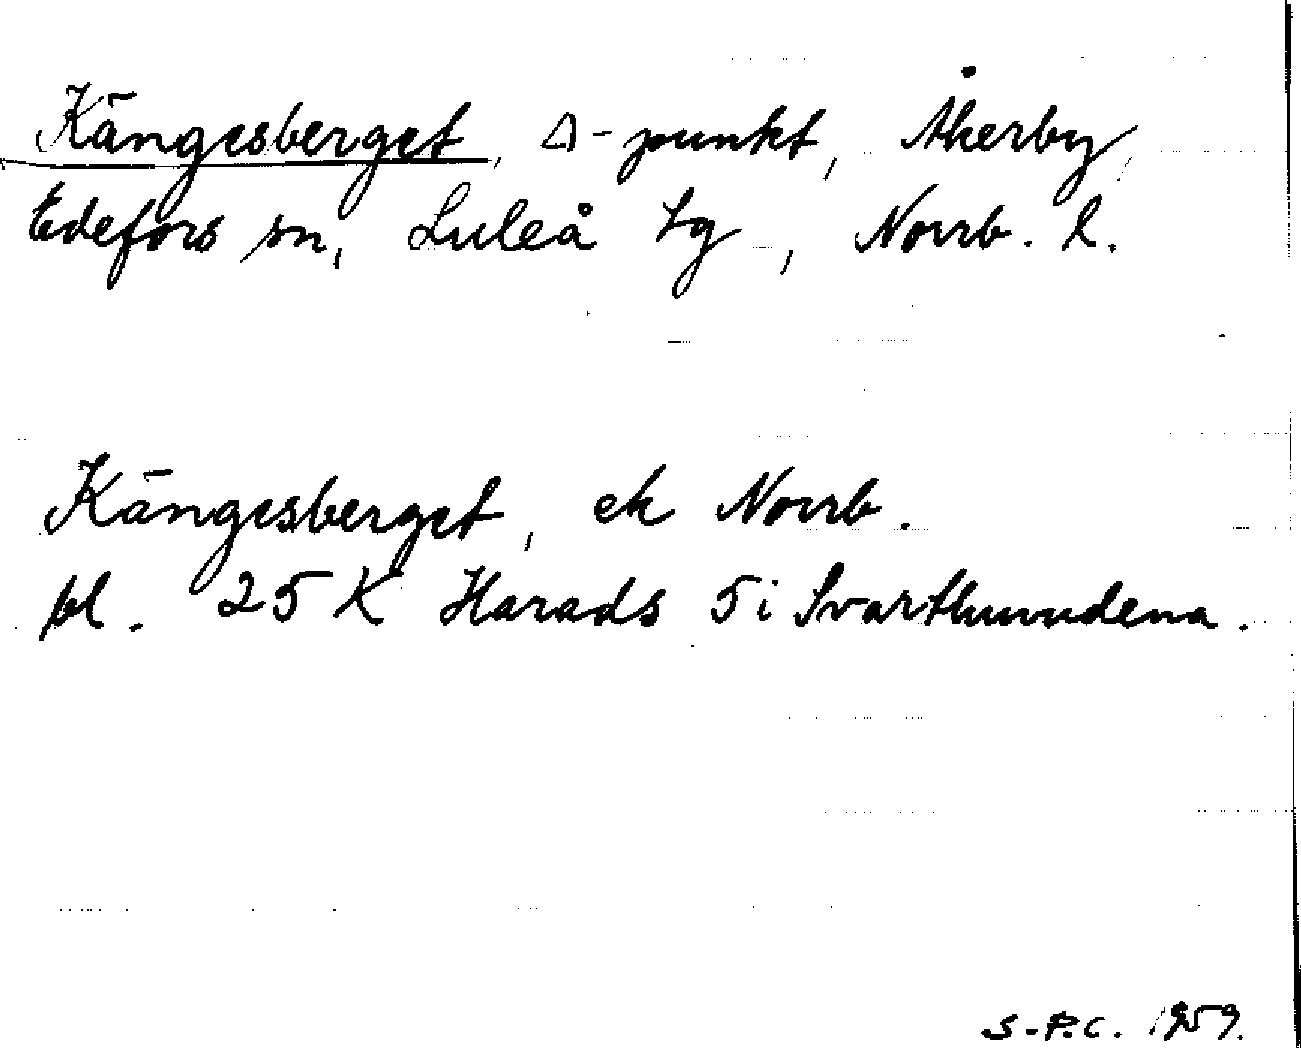 Kängesberget, Δ-punkt, Åkerby,
Edefors sn, Luleå tg, Norrb. l.
Kängesberget, ek Norrb.
bl. 25 K Harads 5 i Svarthuvudena.
S.-P.C. 1959.